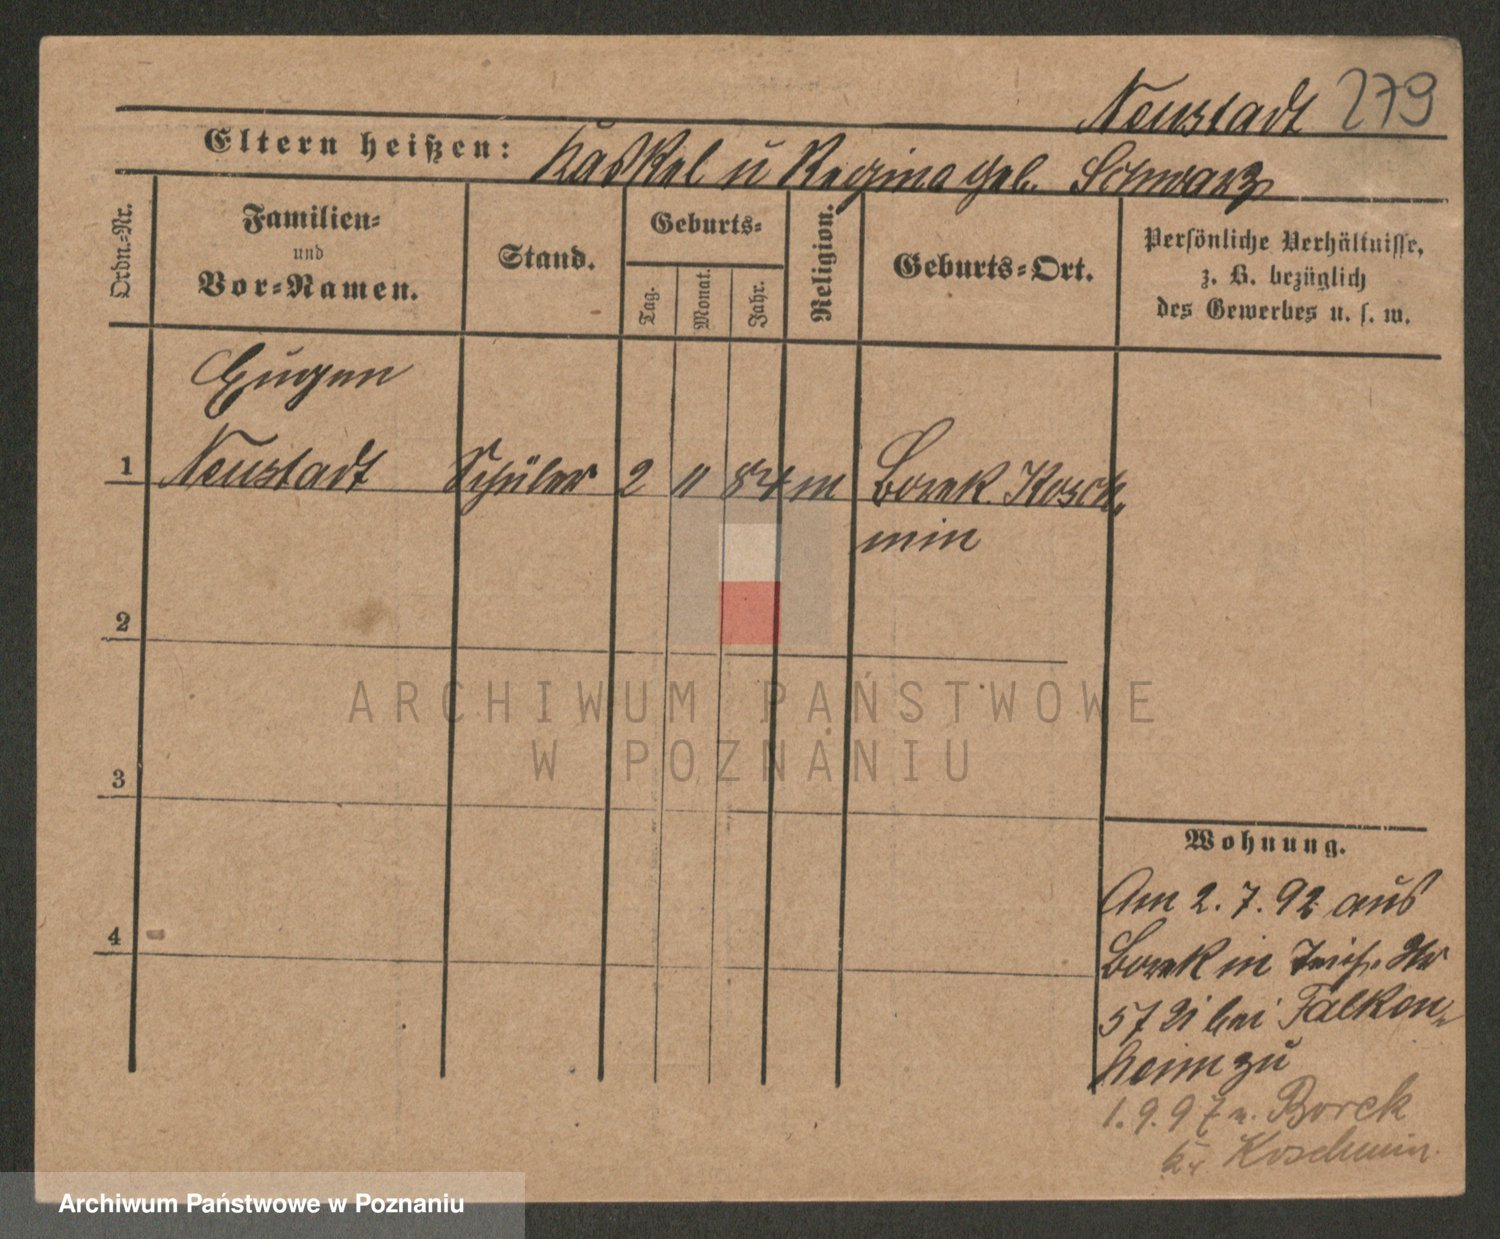 Neustadt 279
Eltern heißen: Haskel u Regina geb. Schwarz
Ordn.-Nr.
Familien-
und
Vor-Namen.
Stand.
Geburts-
Tag.
Monat.
Jahr.
Religion.
Geburts-Ort.
Persönliche Verhältnisse,
z. B. bezüglich
des Gewerbes u. s. w.
Eugen
1 Neustadt Schüler 2 11 84 m Borek Kosch
min
2
3
4
Wohnung.
Am 2.7.92 aus
Borek in
57 bei Falken
heim zu
1.9.97 n. Borek
Kr. Koschmin
ARCHIWUM PAŃSTWOWE
W POZNANIU
Archiwum Państwowe w Poznaniu